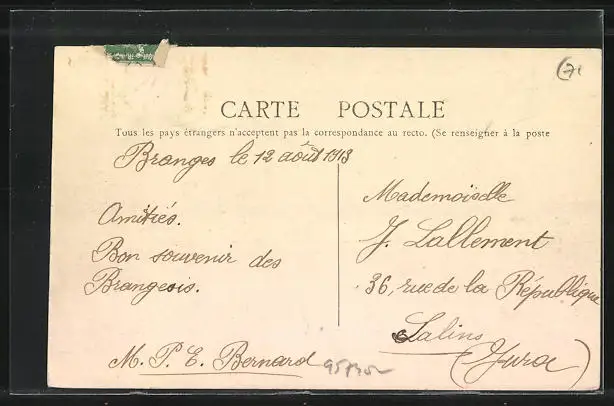 CARTE POSTALE
Tous les pays étrangers n'acceptent pas la correspondance au recto. (Se renseigner à la poste
Branges le 12 août 1913
Amitiés.
Bon souvenir des
Brangeois.
M. P. E. Bernard
Mademoiselle
J. Lallement
36, rue de la République
Salins
(Jura)